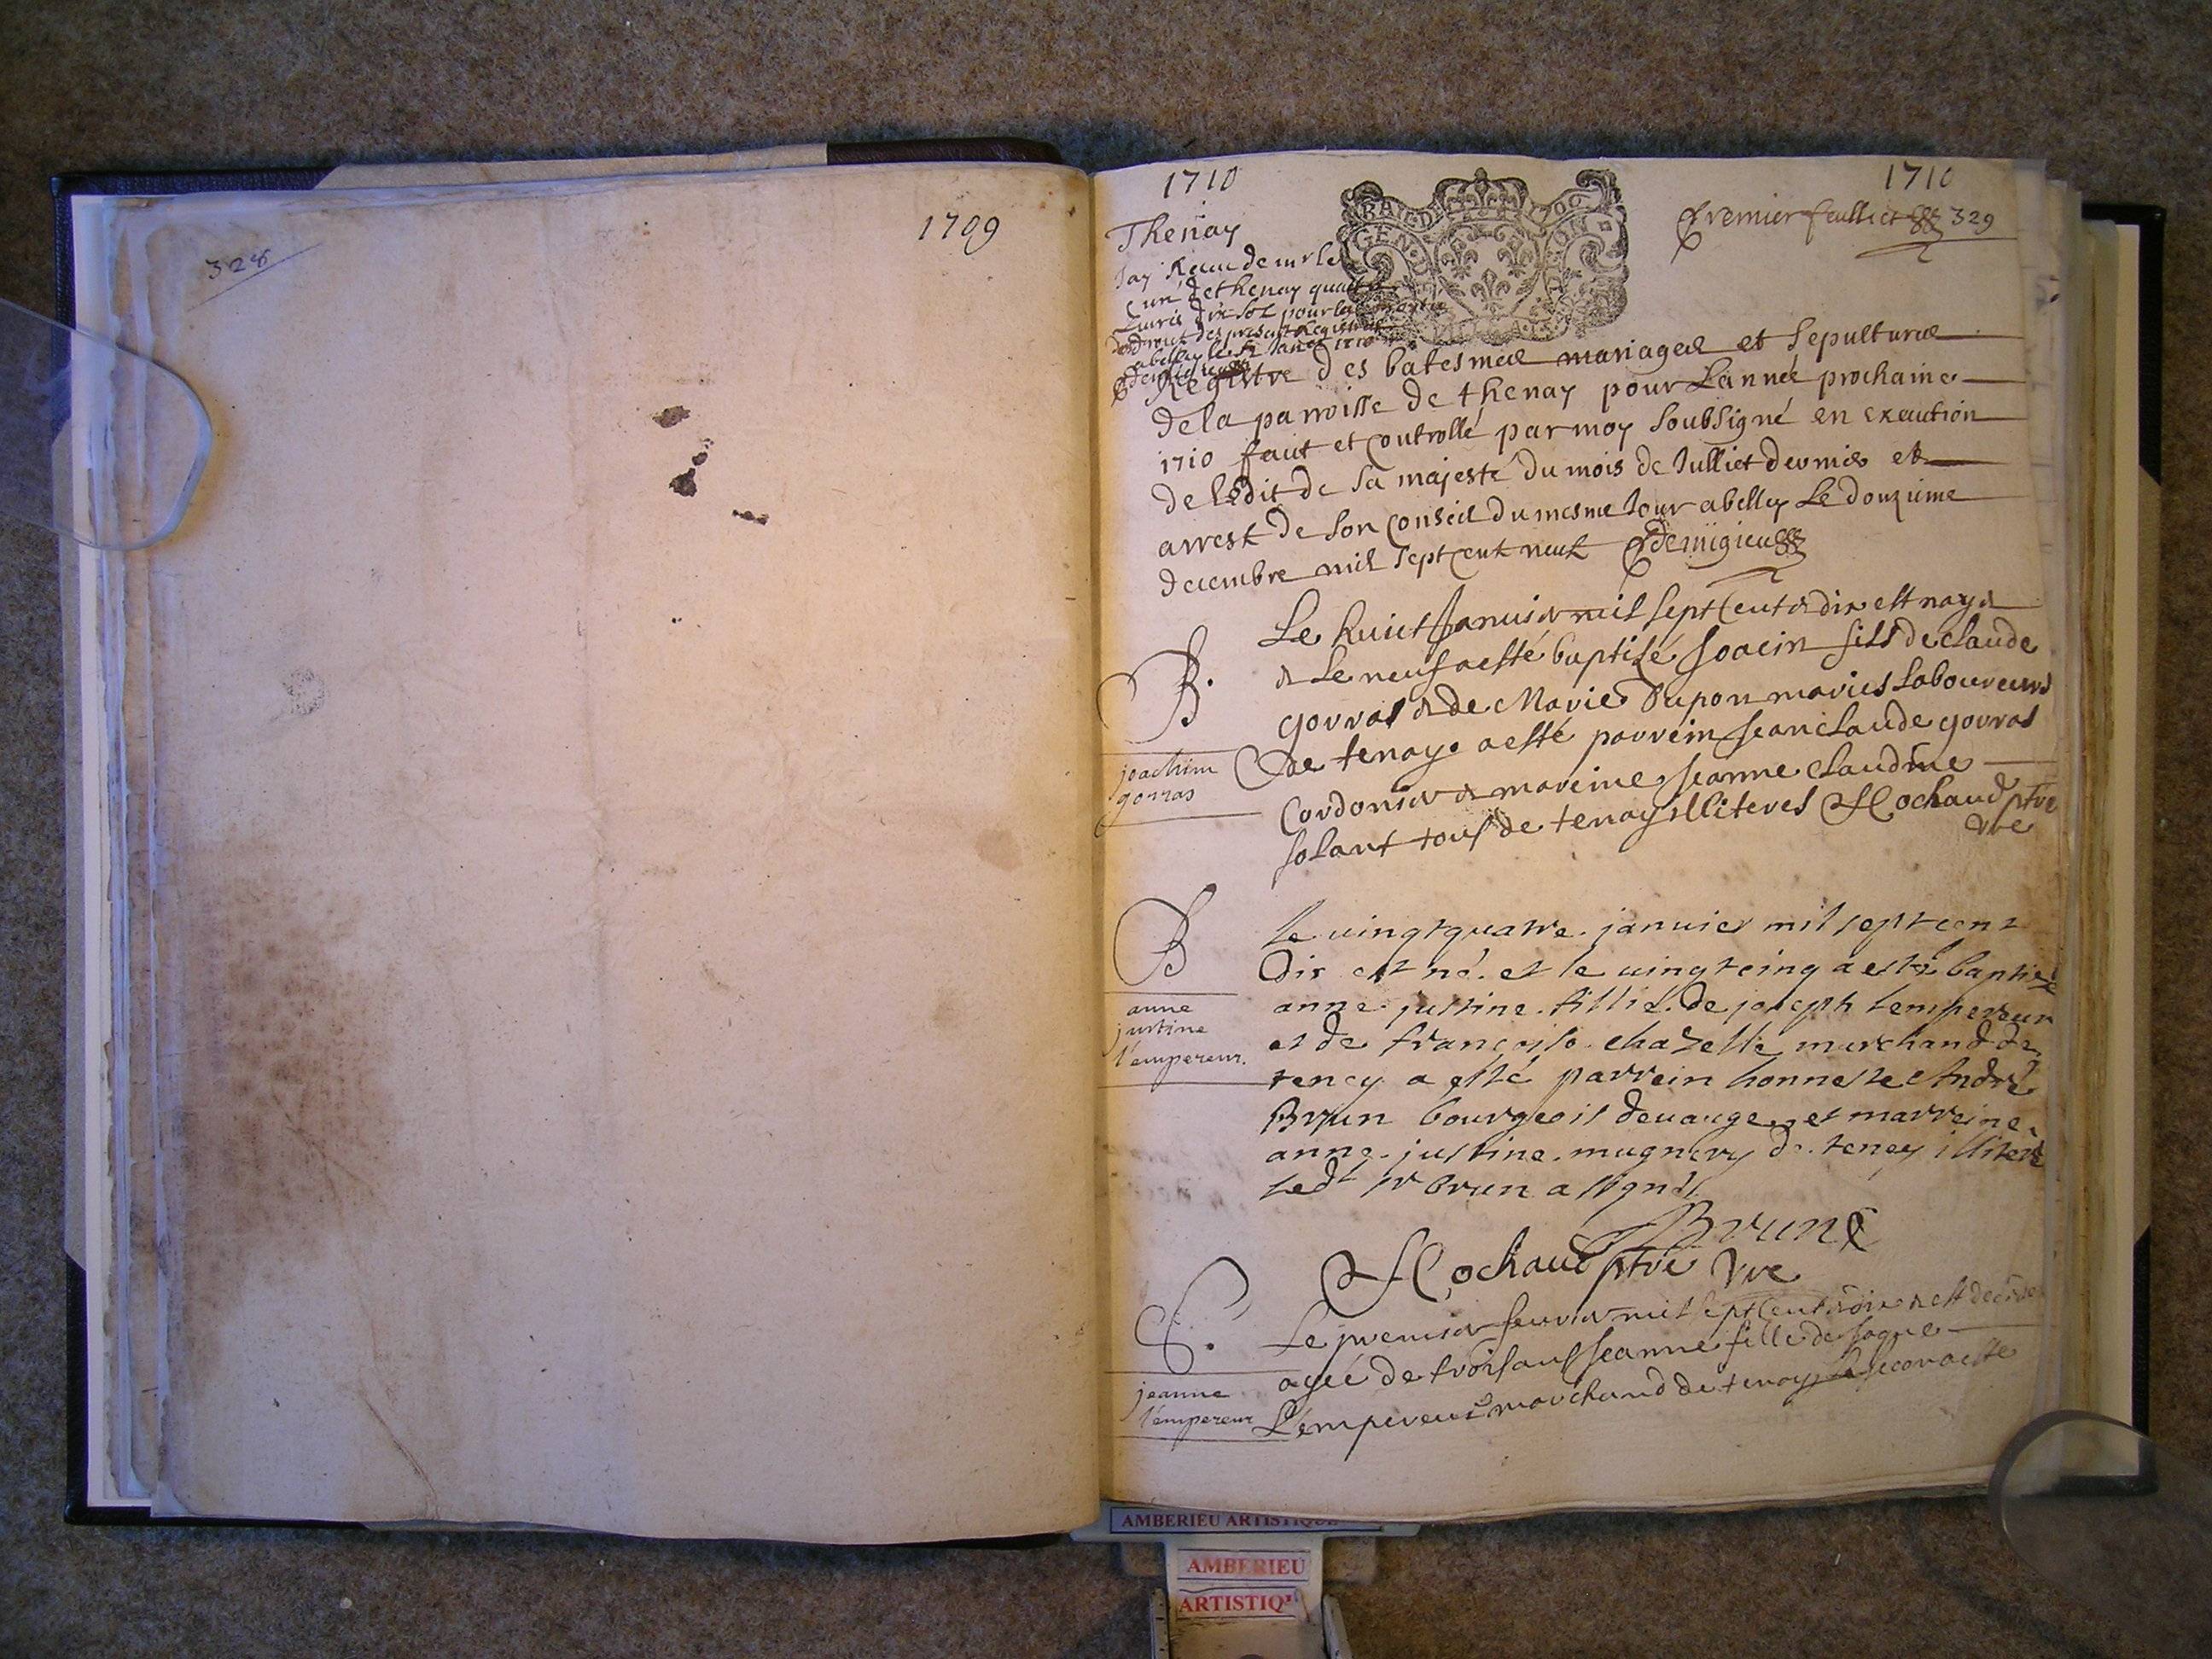 328
1709
1710
1710
Premier feulliet 329
Thenay
Jay Receu de mr le
curé de thenay quatre
Livres dix sol pour
droit des presents Registres
abelley le 12 Janer 1710
GEN DE
Registre des batesmes mariages et sepultures
de la parroisse de thenay pour L'année prochaine
1710 faut et controllé par moy soubsigné en execution
de l'Edit de sa majesté du mois de Julliet dernier et
arrest de son conseil du mesme Jour abelley Le douzieme
decembre mil sept cent neuf Demigieu
B.
joachim
gorras
Le huict Janvier mil sept cent & dix est nay &
& Le neuf a esté baptisé Joacin fils de claude
gorras & de Marie Dupon mariés laboureurs
de tenay. a esté parrein Jean claude gorras
Cordonier & mareine Jeanne claudine
solant tous de tenay illiteres Rochaud ptre
vre
B
anne
justine
l'empereur.
le uingt quatre. januier mil sept cent
dix est né. et le uingt cinq a esté baptisé
anne. justine. fillié. de joseph lempereur
et de françoise chazelle marchand de
teney a esté parrein honneste André
Brun bourgeois deuange. et marreine.
anne. justine. mugnery de. teney illitere
ledt sr brun a signé
Brun
Rochaud ptre vre
S.
jeanne
l'empereur
Le premier feurier mil sept cent & dix & est decedée
agée de trois ans Jeanne fille de Jaque
L'empereur marchand de tenay
AMBERIEU ARTISTIQUE
AMBERIEU
ARTISTIQ